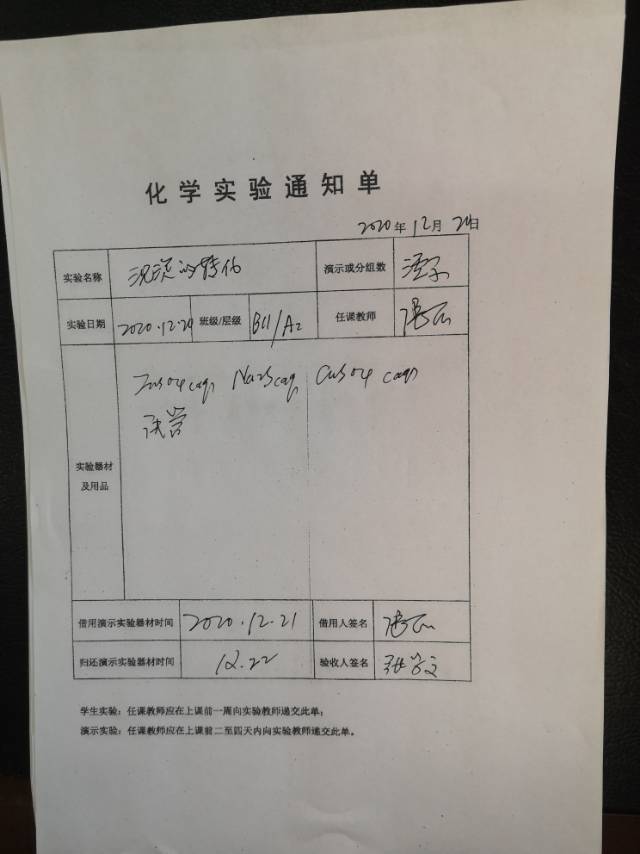 化学实验通知单
2020年12月 日
实验名称 沉淀的转化 演示或分组数 演示
实验日期 2020.12.29 班级/层级 B11/A2 任课教师
ZnSO4(aq) Na2S(aq) CuSO4(aq)
试管
实验器材
及用品
借用演示实验器材时间 2020.12.21 借用人签名
归还演示实验器材时间 12.22 验收人签名 张学文
学生实验：任课教师应在上课前一周向实验教师递交此单；
演示实验：任课教师应在上课前二至四天内向实验教师递交此单。